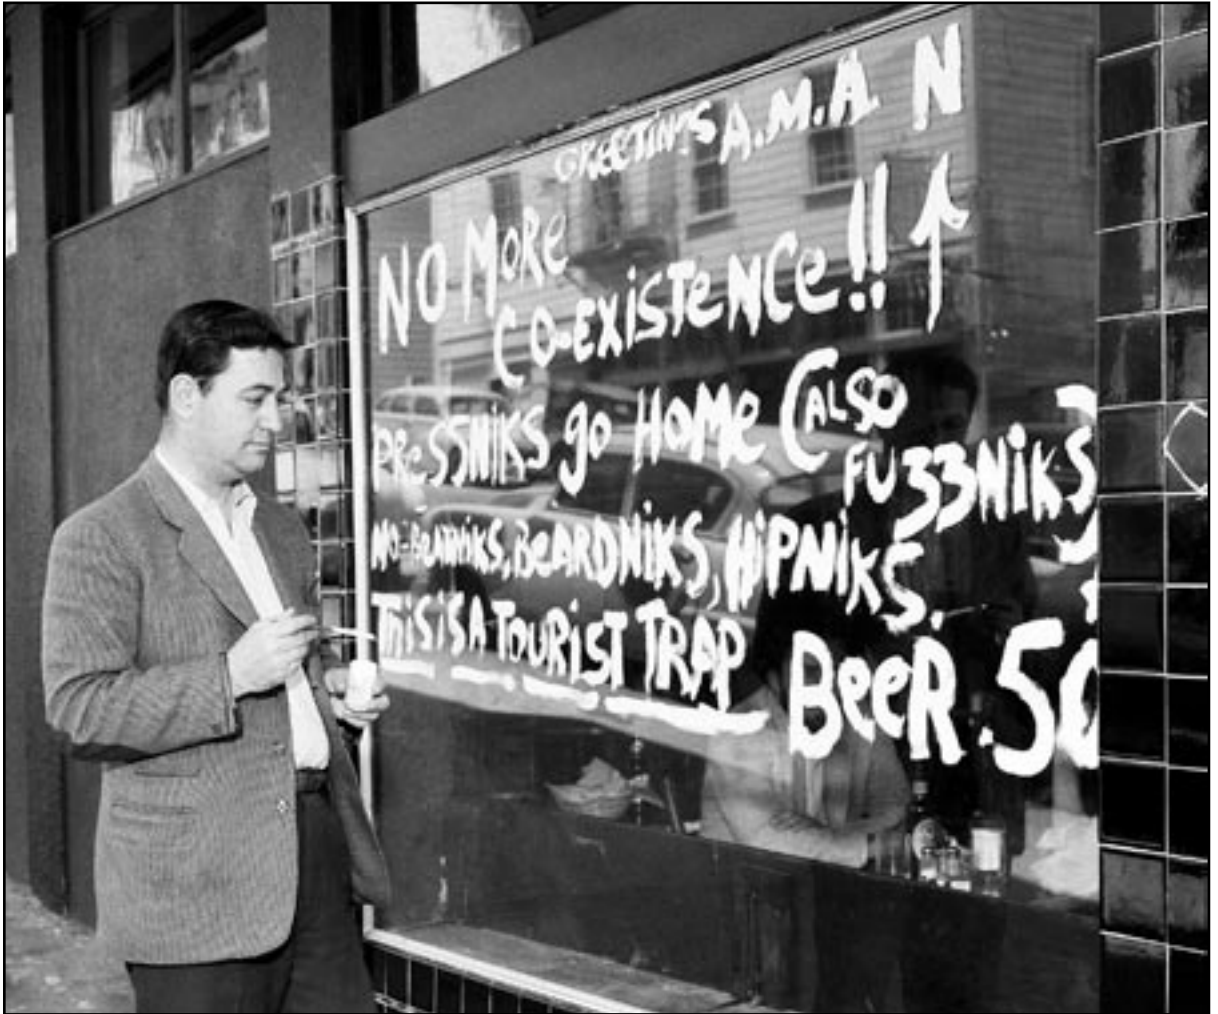 GREETINGS A.M.A. N
NO MORE
CO-EXISTENCE!!
PRESSNIKS go HOME (ALSO
FUZZNIKS)
NO-BEATNIKS, BEARDNIKS, HIPNIKS.
THIS IS A TOURIST TRAP
BeeR .50